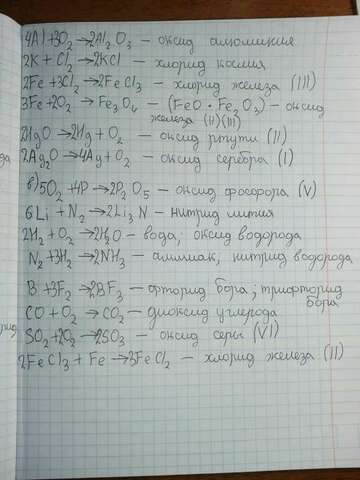 4Al+3O₂→2Al₂O₃ – оксид алюминия
2K + Cl₂→2KCl – хлорид калия
2Fe+3Cl₂→2FeCl₃ – хлорид железа (III)
3Fe+2O₂→ Fe₃O₄ – (FeO·Fe₂O₃) – оксид
железа (II)(III)
2HgO→2Hg+O₂ – оксид ртути (II)
2Ag₂O→4Ag+O₂ – оксид серебра (I)
в) 5O₂+4P→2P₂O₅ – оксид фосфора (V)
6Li + N₂→2Li₃N – нитрид лития
2H₂+O₂→2H₂O – вода; оксид водорода
N₂+3H₂→2NH₃ – аммиак, нитрид водорода
B +3F₂→2BF₃ – фторид бора; трифторид
бора
CO + O₂ → CO₂ – диоксид углерода
SO₂+2O₂→2SO₃ – оксид серы (VI)
2FeCl₃ + Fe →3FeCl₂ – хлорид железа (II)